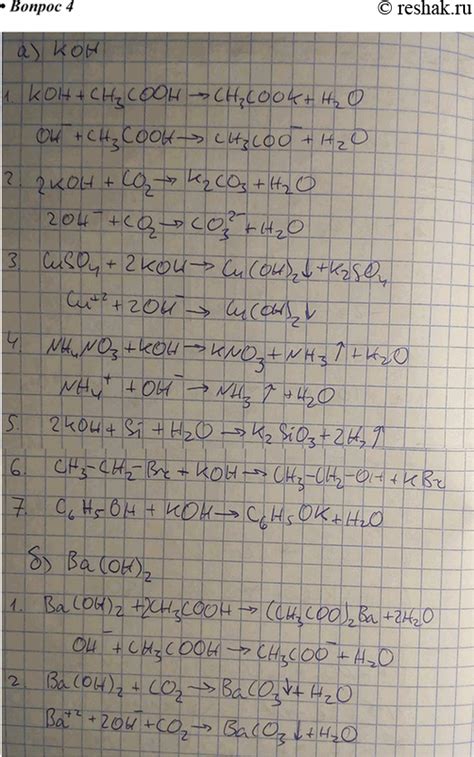 • Вопрос 4
© reshak.ru
а) KOH
1. KOH + CH₃COOH → CH₃COOK + H₂O
OH⁻ + CH₃COOH → CH₃COO⁻ + H₂O
2. 2KOH + CO₂ → K₂CO₃ + H₂O
2OH⁻ + CO₂ → CO₃²⁻ + H₂O
3. CuSO₄ + 2KOH → Cu(OH)₂↓ + K₂SO₄
Cu⁺² + 2OH⁻ → Cu(OH)₂↓
4. NH₄NO₃ + KOH → KNO₃ + NH₃↑ + H₂O
NH₄⁺ + OH⁻ → NH₃↑ + H₂O
5. 2KOH + Si + H₂O → K₂SiO₃ + 2H₂↑
6. CH₃-CH₂-Br + KOH → CH₃-CH₂-OH + KBr
7. C₆H₅OH + KOH → C₆H₅OK + H₂O
б) Ba(OH)₂
1. Ba(OH)₂ + 2CH₃COOH → (CH₃COO)₂Ba + 2H₂O
OH⁻ + CH₃COOH → CH₃COO⁻ + H₂O
2. Ba(OH)₂ + CO₂ → BaCO₃↓ + H₂O
Ba⁺² + 2OH⁻ + CO₂ → BaCO₃↓ + H₂O